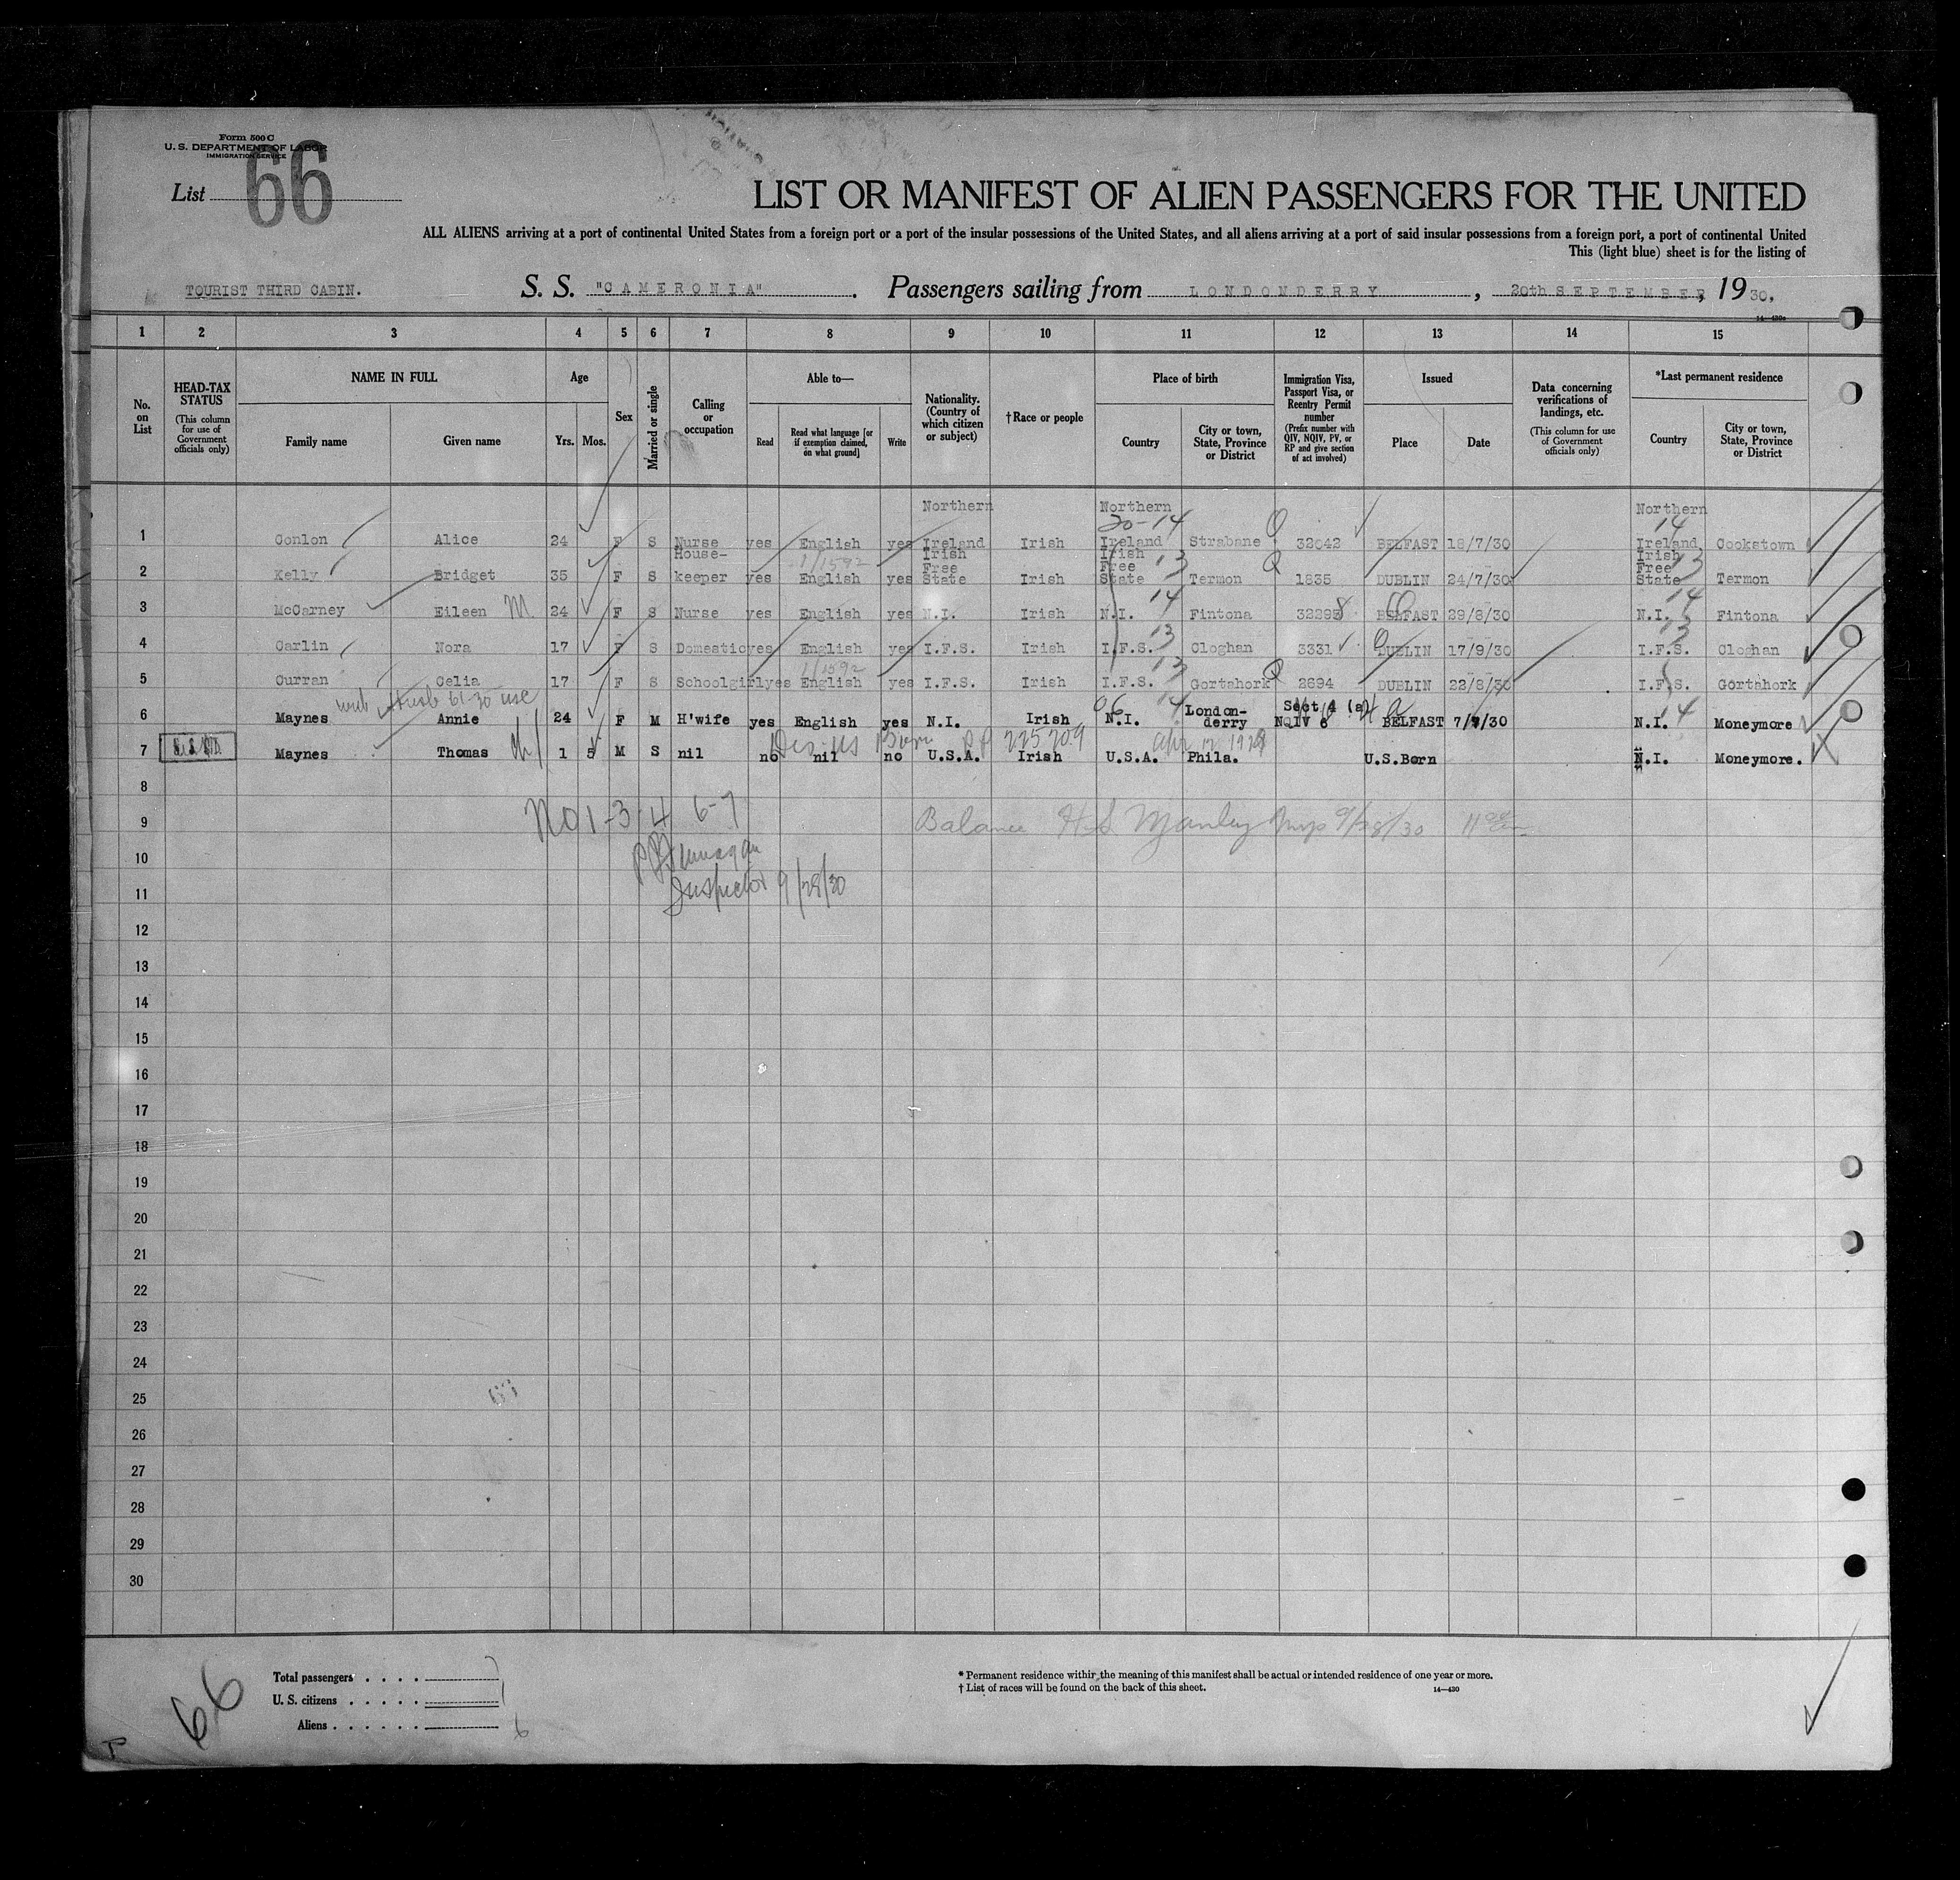 Form 500 C
U. S. DEPARTMENT OF LABOR
IMMIGRATION SERVICE
List 66
LIST OR MANIFEST OF ALIEN PASSENGERS FOR THE UNITED
ALL ALIENS arriving at a port of continental United States from a foreign port or a port of the insular possessions of the United States, and all aliens arriving at a port of said insular possessions from a foreign port, a port of continental United
This (light blue) sheet is for the listing of
TOURIST THIRD CABIN. S. S. "CAMERONIA" . Passengers sailing from LONDONDERRY , 20th SEPTEMBER , 19 30,
14—430a
1 2 3 4 5 6 7 8 9 10 11 12 13 14 15
No. on List
HEAD-TAX STATUS (This column for use of Government officials only)
NAME IN FULL Family name Given name
Age Yrs. Mos.
Sex
Married or single
Calling or occupation
Able to— Read Read what language [or if exemption claimed, on what ground] Write
Nationality. (Country of which citizen or subject)
†Race or people
Place of birth Country City or town, State, Province or District
Immigration Visa, Passport Visa, or Reentry Permit number (Prefix number with QIV, NQIV, PV, or RP and give section of act involved)
Issued Place Date
Data concerning verifications of landings, etc. (This column for use of Government officials only)
*Last permanent residence Country City or town, State, Province or District
Northern Northern Northern
20-14 14
1 Conlon Alice 24 F S Nurse yes English yes Ireland Irish Ireland Strabane 32042 BELFAST 18/7/30 Ireland Cookstown
House- 1/1592 Irish Free Irish Free 13 Irish Free 13
2 Kelly Bridget 35 F S keeper yes English yes State Irish State Termon 1835 DUBLIN 24/7/30 State Termon
14 14
3 McCarney Eileen M 24 F S Nurse yes English yes N.I. Irish N.I. Fintona 32295 8 BELFAST 29/8/30 N.I. Fintona
13 13
4 Carlin Nora 17 F S Domestic yes English yes I.F.S. Irish I.F.S. Cloghan 3331 DUBLIN 17/9/30 I.F.S. Cloghan
1/1592 13
5 Curran Celia 17 F S Schoolgirl yes English yes I.F.S. Irish I.F.S. Gortahork 2694 DUBLIN 22/8/30 I.F.S. Gortahork
06 14 London- Sect 4 (a) 14
6 Maynes Annie 24 F M H'wife yes English yes N.I. Irish N.I. derry NQIV 6 BELFAST 7/7/30 N.I. Moneymore
US Born PP 225209
7 Maynes Thomas 1 5 M S nil no nil no U.S.A. Irish U.S.A. Phila. U.S.Born N.I. Moneymore.
8
9 No 1-3-4 6-7 Balance H.S. Manley Insp 9/28/30
10
11 Inspector 9/28/30
12
13
14
15
16
17
18
19
20
21
22
23
24
25
26
27
28
29
30
Total passengers 7
U. S. citizens 1
Aliens 6
66
* Permanent residence within the meaning of this manifest shall be actual or intended residence of one year or more.
† List of races will be found on the back of this sheet. 14—430